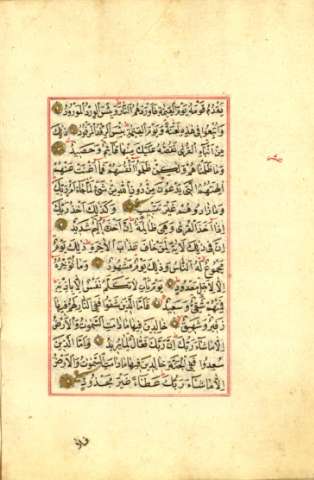 يَقْدُمُ قَوْمَهُ يَوْمَ الْقِيٰمَةِ فَاَوْرَدَهُمُ النَّارَ وَبِئْسَ الْوِرْدُ الْمَوْرُودُ
وَاُتْبِعُوا فِى هٰذِهِ لَعْنَةً وَيَوْمَ الْقِيٰمَةِ بِئْسَ الرِّفْدُ الْمَرْفُودُ ذٰلِكَ
مِنْ اَنْبَاءِ الْقُرٰى نَقُصُّهُ عَلَيْكَ مِنْهَا قَائِمٌ وَحَصِيدٌ
وَمَا ظَلَمْنَاهُمْ وَلٰكِنْ ظَلَمُوا اَنْفُسَهُمْ فَمَا اَغْنَتْ عَنْهُمْ
اٰلِهَتُهُمُ الَّتِى يَدْعُونَ مِنْ دُونِ اللّٰهِ مِنْ شَىْءٍ لَمَّا جَاءَ اَمْرُ رَبِّكَ
وَمَا زَادُوهُمْ غَيْرَ تَتْبِيبٍ وَكَذٰلِكَ اَخْذُ رَبِّكَ
اِذَا اَخَذَ الْقُرٰى وَهِىَ ظَالِمَةٌ اِنَّ اَخْذَهُ اَلِيمٌ شَدِيدٌ
اِنَّ فِى ذٰلِكَ لَاٰيَةً لِمَنْ خَافَ عَذَابَ الْاٰخِرَةِ ذٰلِكَ يَوْمٌ
مَجْمُوعٌ لَهُ النَّاسُ وَذٰلِكَ يَوْمٌ مَشْهُودٌ وَمَا نُؤَخِّرُهُ
اِلَّا لِاَجَلٍ مَعْدُودٍ يَوْمَ يَاْتِ لَا تَكَلَّمُ نَفْسٌ اِلَّا بِاِذْنِهِ
فَمِنْهُمْ شَقِىٌّ وَسَعِيدٌ فَاَمَّا الَّذِينَ شَقُوا فَفِى النَّارِ لَهُمْ فِيهَا
زَفِيرٌ وَشَهِيقٌ خَالِدِينَ فِيهَا مَا دَامَتِ السَّمٰوَاتُ وَالْاَرْضُ
اِلَّا مَا شَاءَ رَبُّكَ اِنَّ رَبَّكَ فَعَّالٌ لِمَا يُرِيدُ وَاَمَّا الَّذِينَ
سُعِدُوا فَفِى الْجَنَّةِ خَالِدِينَ فِيهَا مَا دَامَتِ السَّمٰوَاتُ وَالْاَرْضُ
اِلَّا مَا شَاءَ رَبُّكَ عَطَاءً غَيْرَ مَجْذُوذٍ
فلا